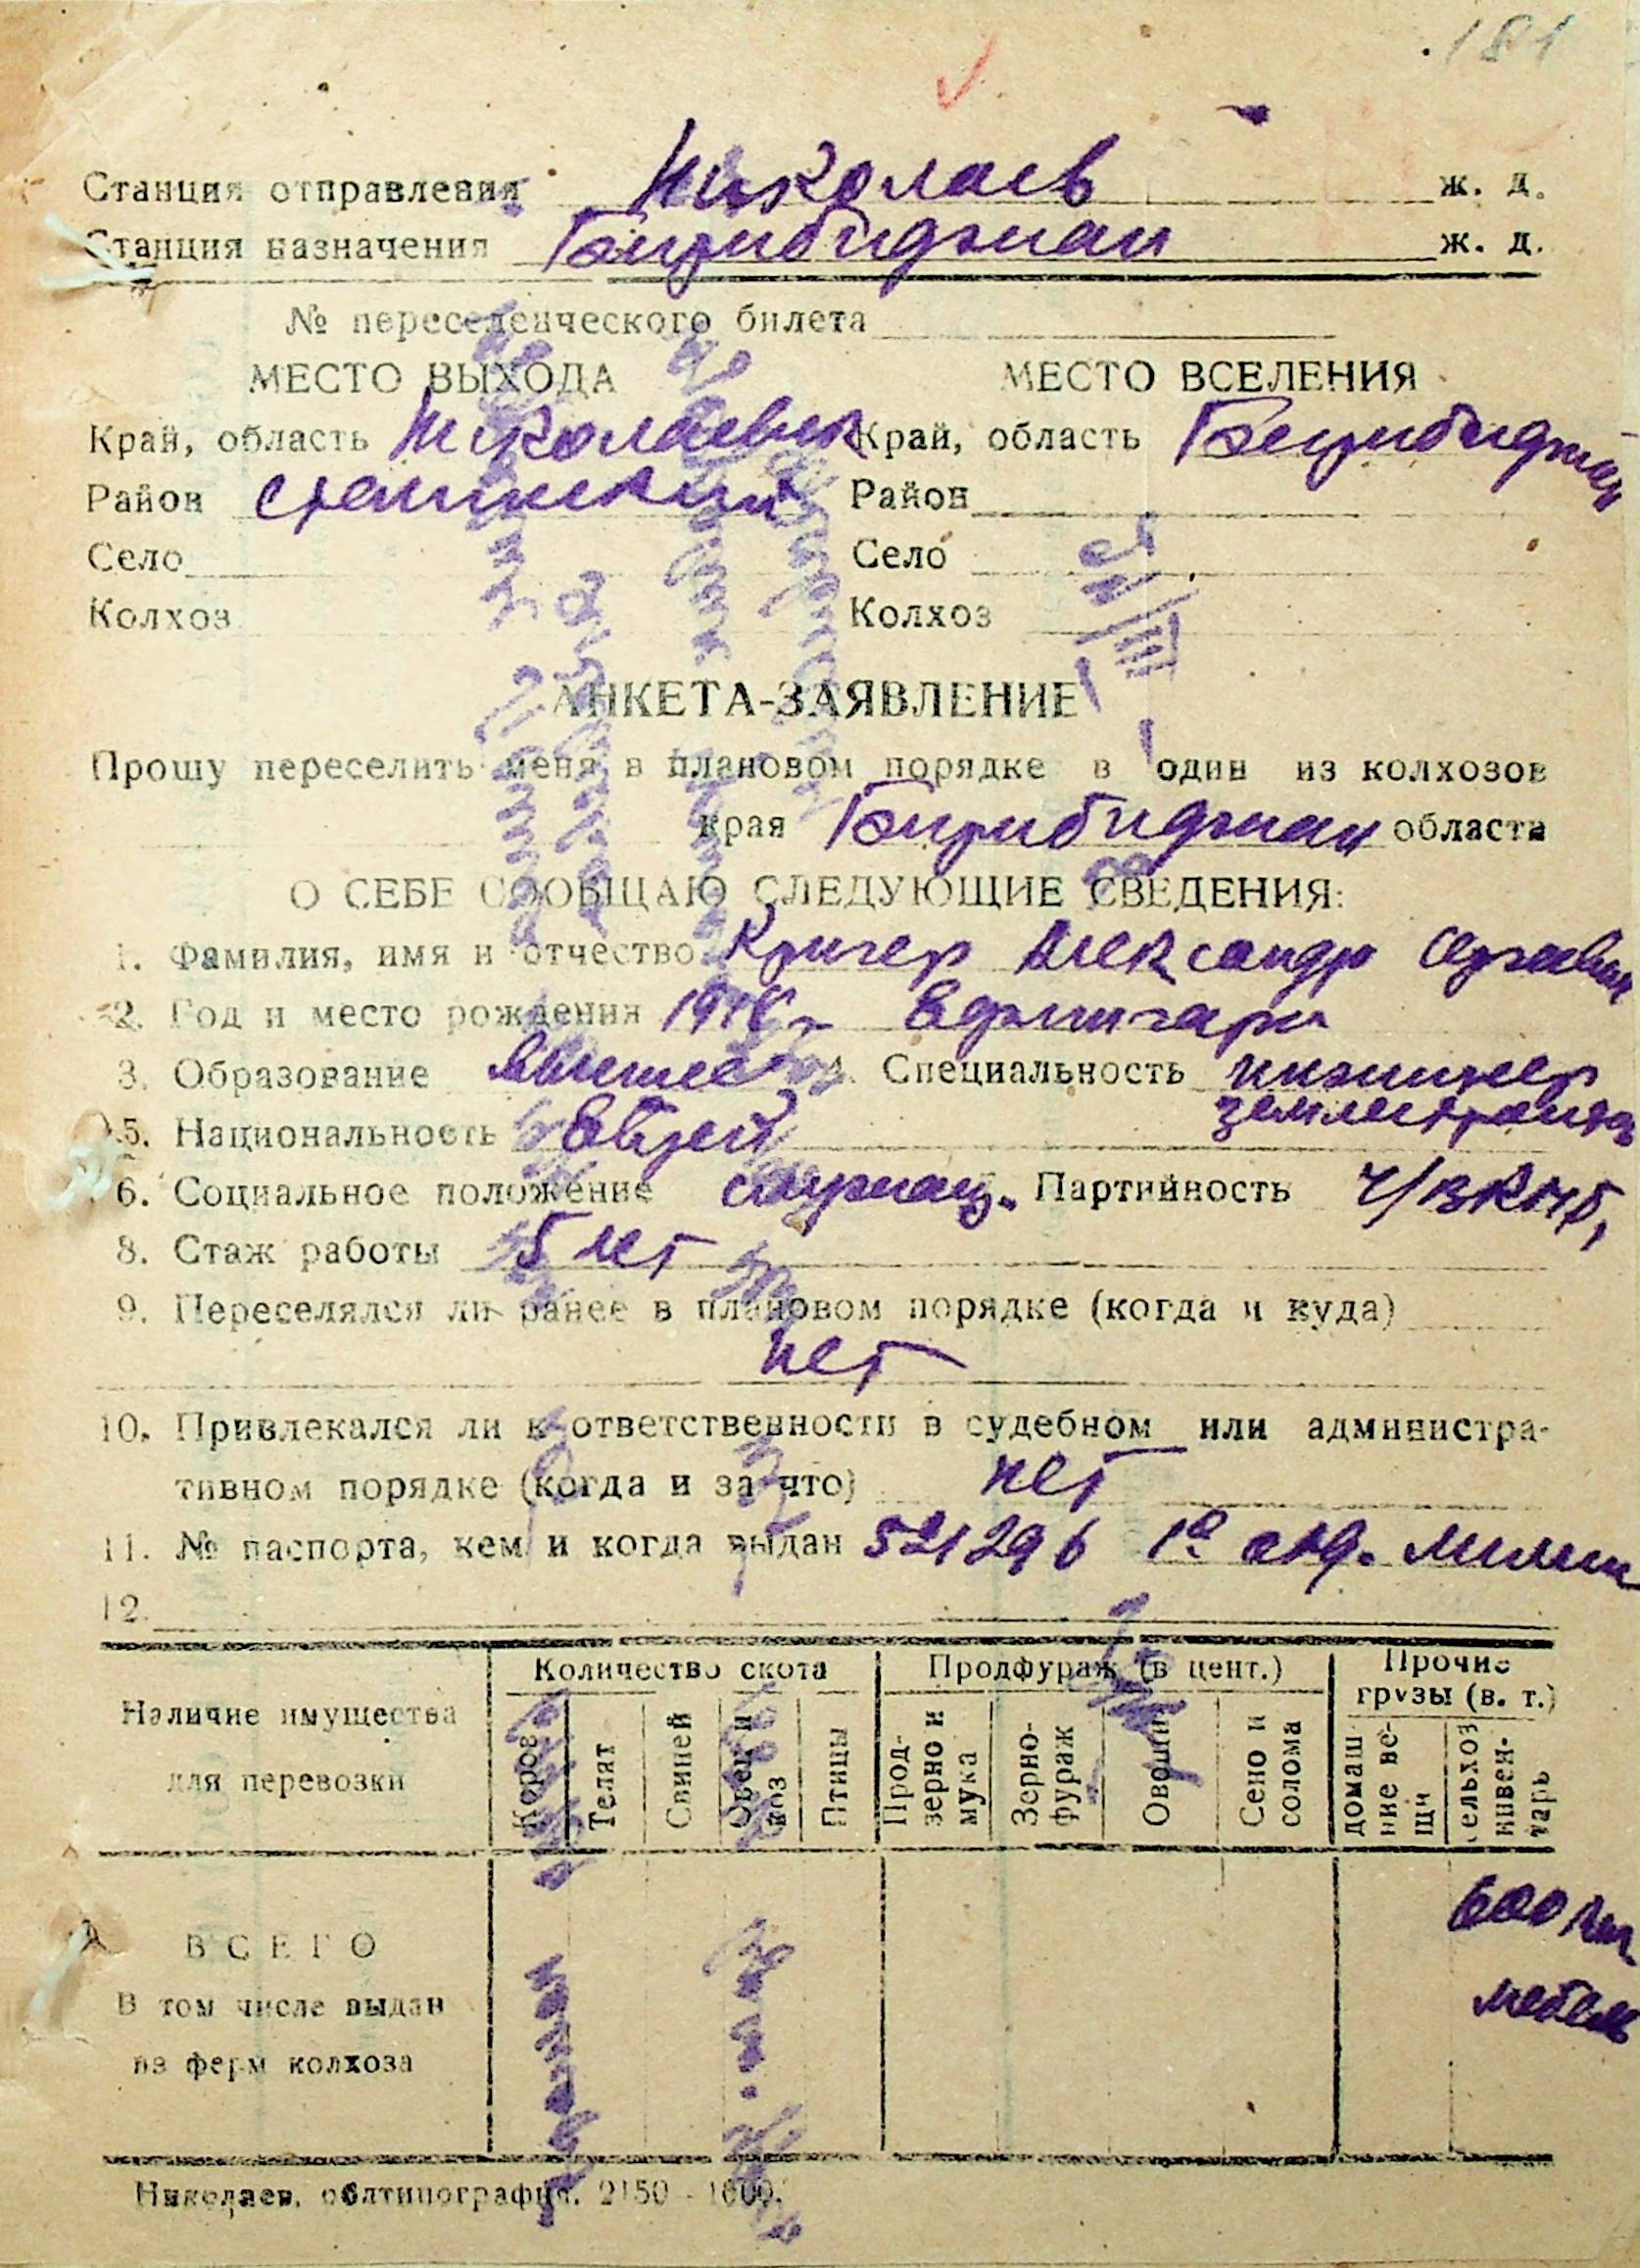 181
Станция отправления Николаев ж. д.
Станция назначения Биробиджан ж. д.
№ переселенческого билета
МЕСТО ВЫХОДА МЕСТО ВСЕЛЕНИЯ
Край, область Николаевск Край, область Биробиджан
Район Сталинский Район
Село Село
Колхоз Колхоз
АНКЕТА-ЗАЯВЛЕНИЕ
Прошу переселить меня в плановом порядке в один из колхозов
края Биробиджан области
О СЕБЕ СООБЩАЮ СЛЕДУЮЩИЕ СВЕДЕНИЯ:
1. Фамилия, имя и отчество Кригер Александр
2. Год и место рождения
3. Образование высшее 4. Специальность инженер
5. Национальность еврей
6. Социальное положение служащ. Партийность ч/ВКПб,
8. Стаж работы 5 лет
9. Переселялся ли ранее в плановом порядке (когда и куда)
нет
10. Привлекался ли к ответственности в судебном или администра-
тивном порядке (когда и за что) нет
11. № паспорта, кем и когда выдан 521296 1е отд. милиц
12.
Количество скота Продфураж (в цент.) Прочие
грузы (в. т.)
Наличие имущества
для перевозки
Коров Телят Свиней Овец и коз Птицы Прод-зерно и мука Зерно-фураж Овощи Сено и солома домаш ние ве-щи сельхоз инвен-тарь
600 кг.
мебель
ВСЕГО
В том числе выдан
из ферм колхоза
Николаев, облтипография. 2150 - 1600.